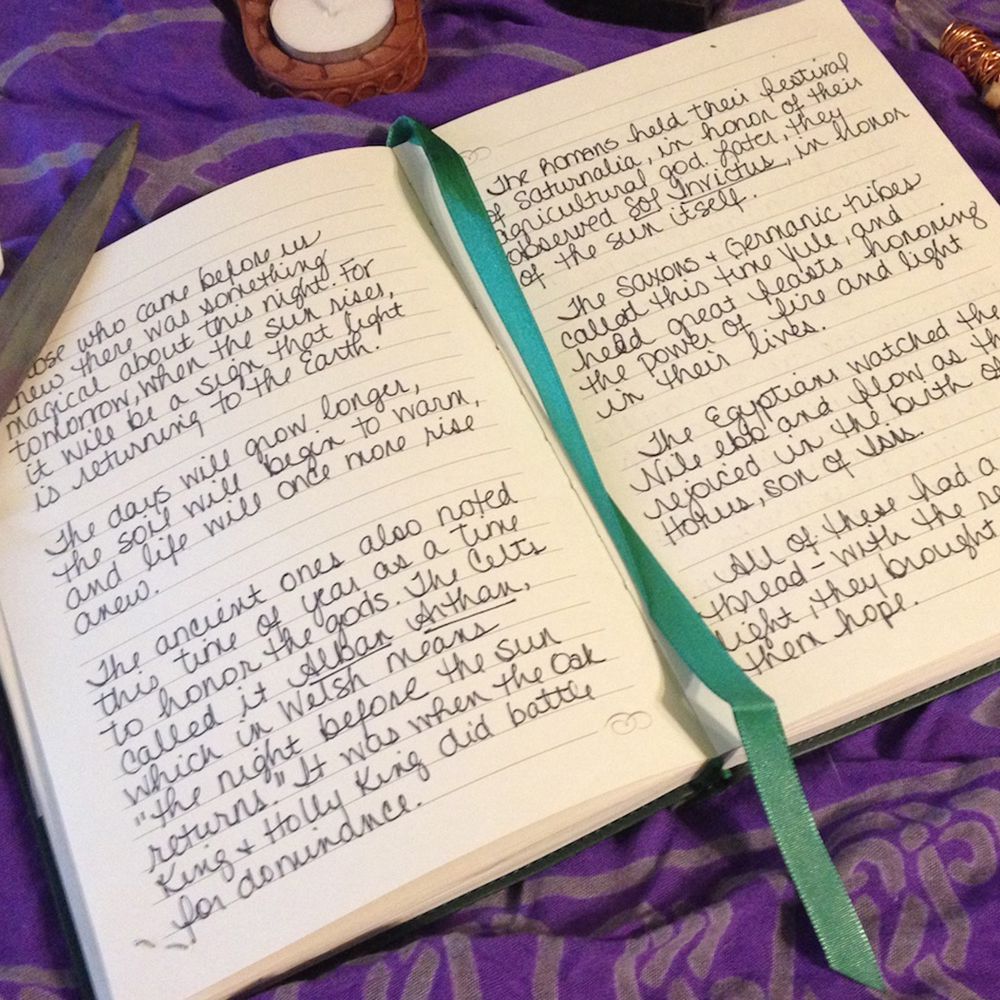 who came before us
knew there was something
magical about this night. For
tomorrow, when the sun rises,
it will be a sign that light
is returning to the Earth.
The days will grow longer,
the soil will begin to warm,
and life will once more rise
anew.
The ancient ones also noted
this time of year as a time
to honor the gods. The Celts
called it Alban Arthan,
which in Welsh means
"the night before the sun
returns." It was when the Oak
King + Holly King did battle
for domindnce.
The Romans held their festival
of Saturnalia, in honor of their
agricultural god. Later, they
observed Sol Invictus, in honor
of the sun itself.
The Saxons + Germanic tribes
called this time Yule, and
held great feasts honoring
the power of fire and light
in their lives.
The Egyptians watched the
Nile ebb and flow as
rejoiced in the birth of
Horus, son of Isis.
All of these had a
thread - with the
light, they brought
them hope.